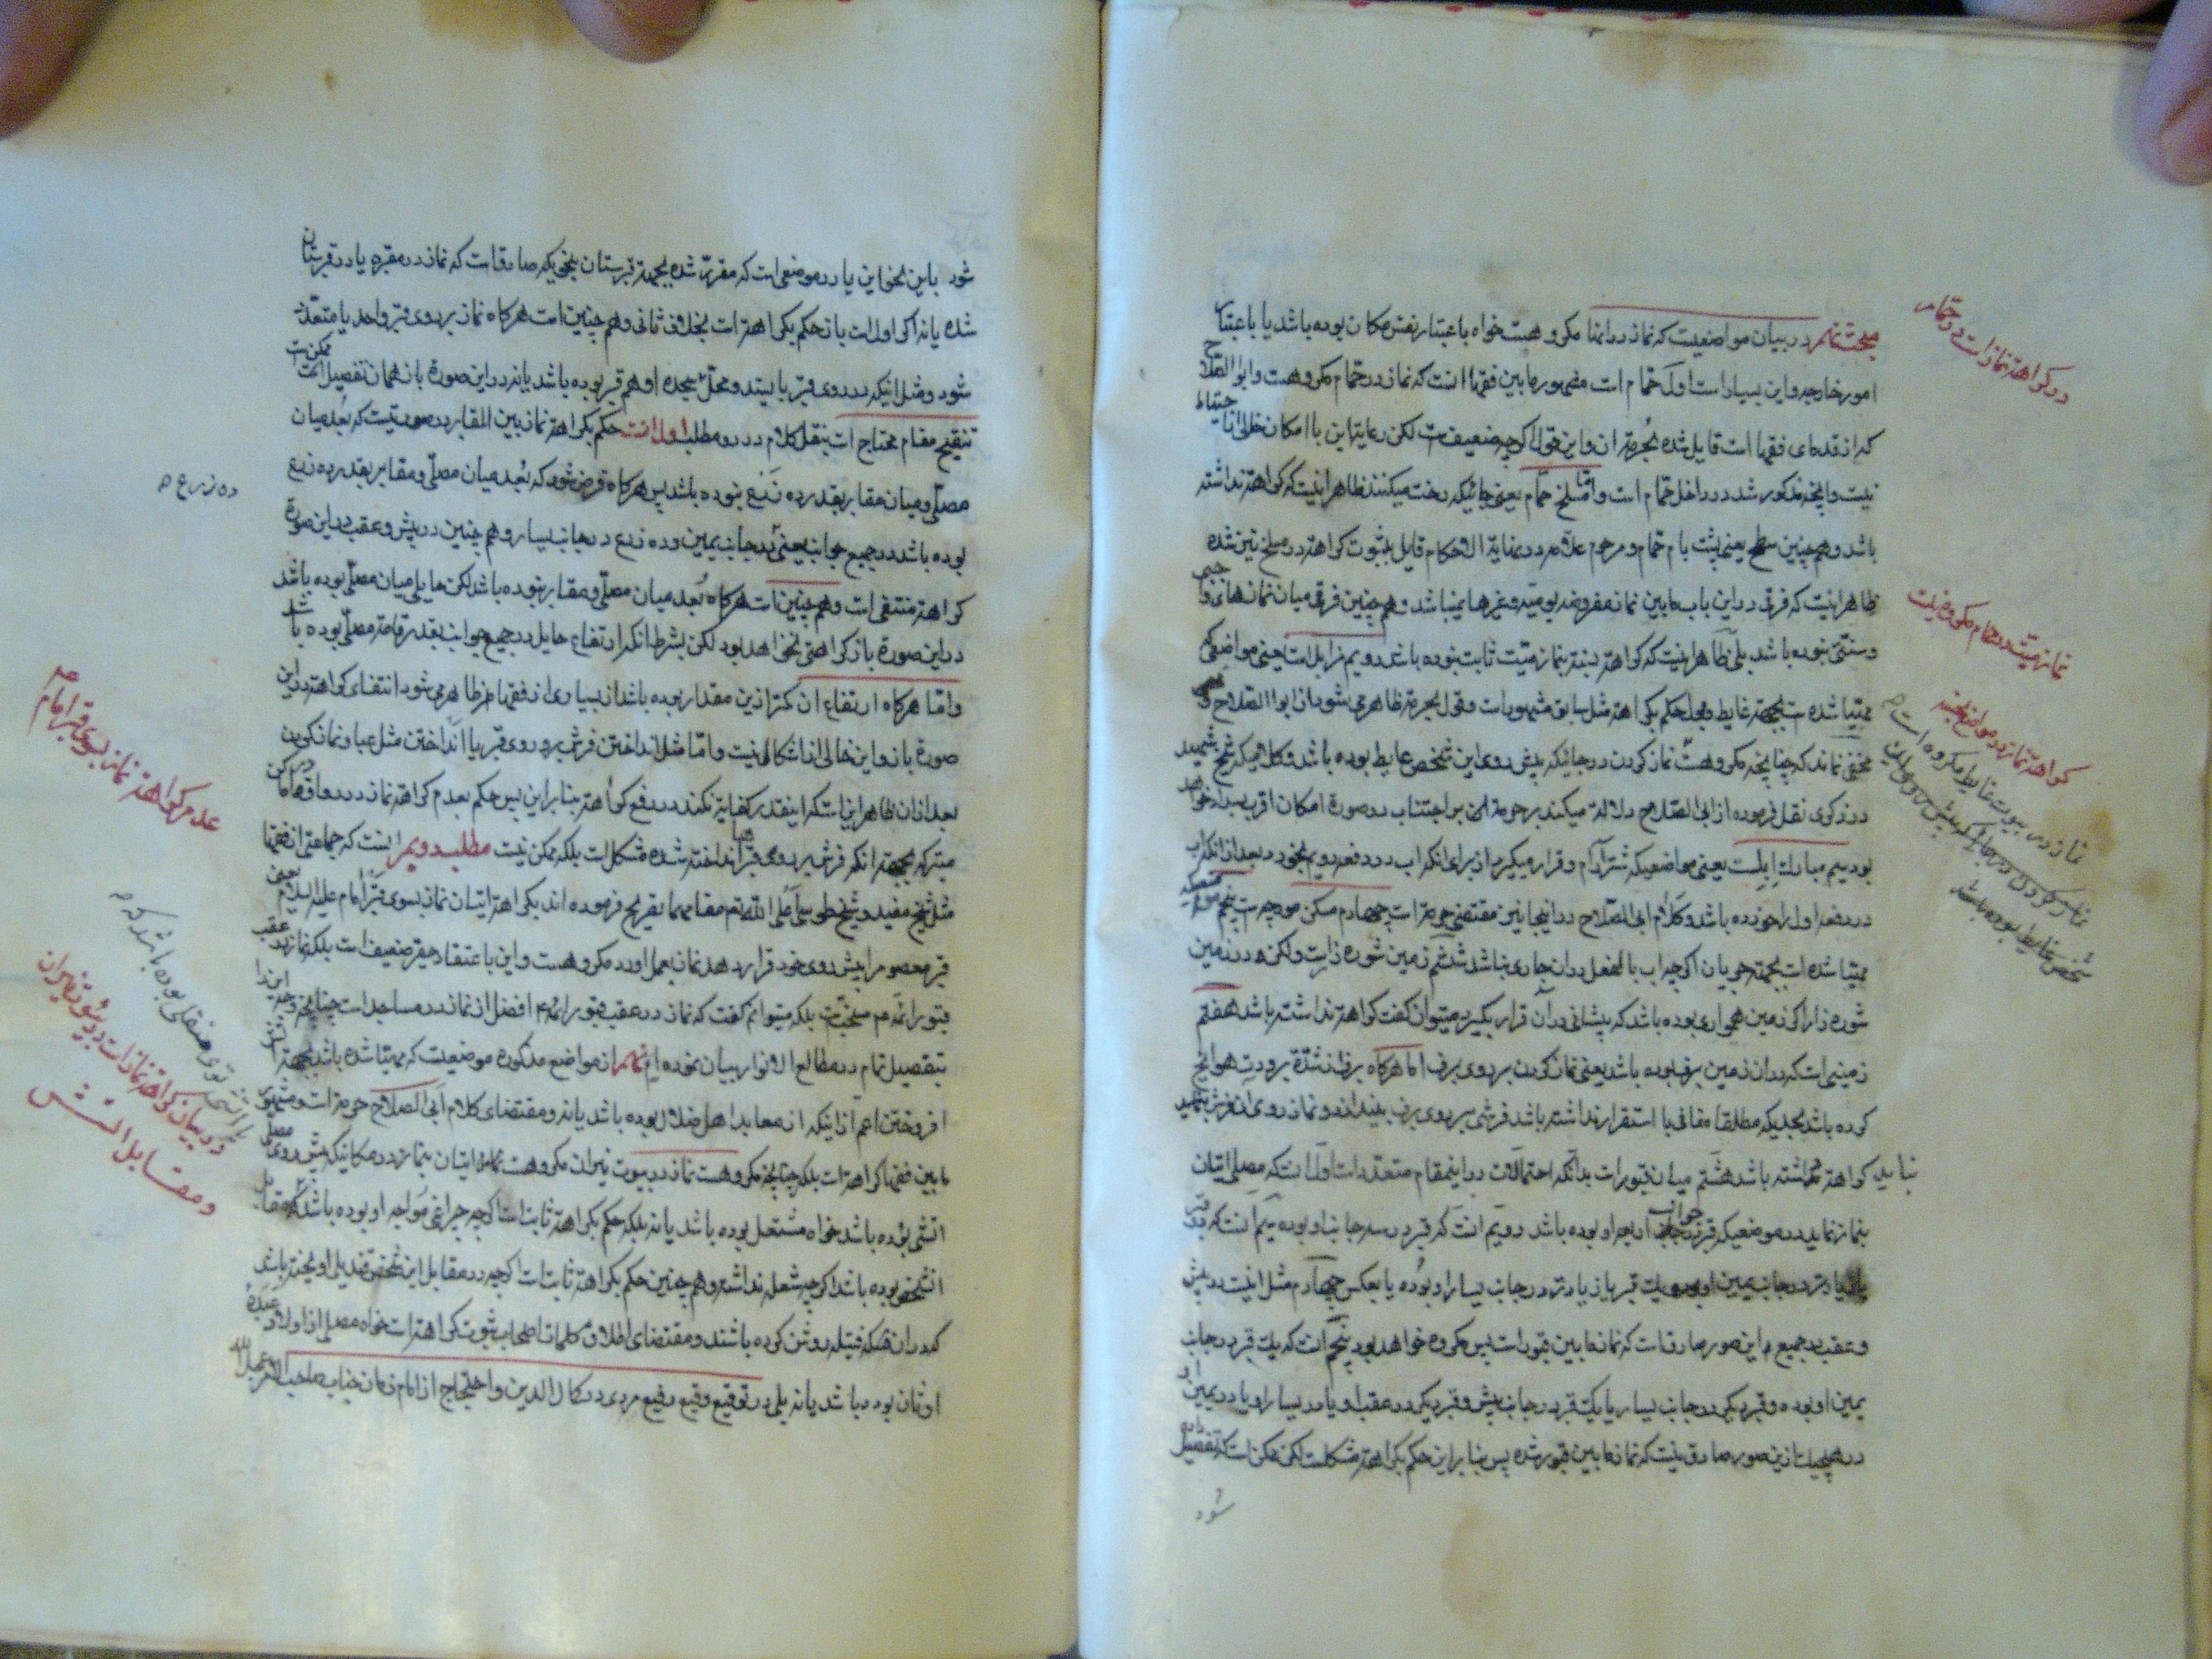 مبحث نهم در بیان مواضعیست که نماز در اینها مکروهست خواه باعتبار نفس مکان بوده باشد یا باعتبار
امور خارجیه و این بسیار است اول حمام است مشهور مابین فقها انست که نماز در حمام مکروهست و ابو الصلاح
که از قدمای فقها است قایل شده بحرمة ان و این قول اگر چه ضعیف است لکن رعایة این با امکان خالی از احتیاط
نیست و انچه مذکور شد در داخل حمام است و اما مسلخ حمام یعنی جائیکه رخت میکنند ظاهر اینست که کراهة نداشته
باشد و همچنین سطح یعنی پشت بام حمام و مرحوم علامه در نهایة الاحکام قایل بثبوت کراهة در مسلخ نیز شده
ظاهر اینست که فرقی در این باب مابین نماز مفروضه یومیه و غیرها نمیباشد و همچنین فرقی میان نمازهای واجبی
و سنتی نبوده باشد بلی ظاهر اینست که کراهة نسبة بنماز میت ثابت نبوده باشد دویم مزابل است یعنی مواضعی که
مهیا شده است بجهة غایط و بول حکم بکراهة مثل سابق مشهور است و قول بحرمة ظاهر می شود از ابو الصلاح
مخفی نماند که چنانچه مکروهست نماز کردن در جائیکه پیش روی این شخص غایط بوده باشد و کلامیکه شیخ شهید
در ذکری نقل فرموده از ابی الصلاح دلالة میکند بر حرمة این پس اجتناب در صورة امکان اقرب بسداد خواهد
بود سیم مبارک ابلست یعنی مواضعیکه شتر آرام و قرار میگیرد از برای انکه اب در دفعه دویم بخورد بعد از انکه اب
در دفعه اول را خورده باشد و کلام ابی الصلاح در اینجا نیز مقتضی حرمة است چهارم مسکن مورچه است پنجم موضعیکه
مهیا شده است بجهة جریان اگر چه اب بالفعل در ان جاری نباشد ششم زمین شوره زار است ولکن در زمین
شوره زار اگر زمین همواری بوده باشد که پیشانی در آن قرار بگیرد میتوان گفت کراهة نداشته باشد هفتم
زمینی است که در ان زمین برف بوده باشد یعنی نماز کردن بر روی برف اما هرگاه برف از شدة برودت هوا یخ
کرده باشد بحدیکه مطلقا منافی با استقرار نداشته باشد فرشی بر روی برف بیندازد و نماز روی ان فرش بنماید
نباید کراهة داشته باشد هشتم میان قبور است بدانکه احتمالات در اینمقام متعدد است اول انست که مصلی اتیان
بنماز نماید در موضعیکه قبر در جوانب اربعه او بوده باشد دویم انست که قبر در سه جانب او بوده سیم انست که دو قبر
یا زیادتر در جانب یمین او بوده یک قبر یا زیادتر در جانب یسار او بوده یا بعکس چهارم مثل اینست در پیش
و عقب در جمیع این صور صادقست که نماز مابین قبور است پس مکروه خواهد بود پنجم انست که یک قبر در جانب
یمین او بوده و قبر دیگر در جانب یسار یا یک قبر در جانب پیش و قبر دیگر در عقب او یا در یسار او یا در یمین او
در هیچیک از این صور صادق نیست که نماز مابین قبور شده پس بنابراین حکم بکراهة مشکلست لکن ممکن است که تفصیل داده
شود
در کراهة نماز است در حمام
نماز میت در حمام مکروه نیست
کراهة نماز در مواضع
نماز در بیوت غایط مکروه است
نماز کردن در جائی که پیش روی این
شخص غایط بوده باشد
شود باین نحو این یا در موضعی است که مقرر شده بجهة قبرستان بنحویکه صادقست که نماز در مقبره یا در قبرستان
شده یا نه اگر اول است باز حکم بکراهة است بخلاف ثانی و هم چنین است هرگاه نماز بر روی قبر واحد یا متعدد
شود و مثل اینکه در روی قبر بایستد و محل سجده او هم قبر بوده باشد یا نه در این صورة باز همان تفصیل ممکن است
تنقیح مقام محتاج است بنقل کلام در دو مطلب اول انست حکم بکراهة نماز بین المقابر در صورتیست که بعد میان
مصلی و میان مقابر بقدر ده ذرع نبوده باشد پس هرگاه فرض شود که بعد میان مصلی و مقابر بقدر ده ذرع
بوده باشد در جمیع جوانب یعنی در جانب یمین و ده ذرع در جانب یسار و هم چنین در پیش و عقب در این صورة
کراهة منتفی است و هم چنین است هرگاه بعد میان مصلی و مقابر نبوده باشد لکن حایلی میان مصلی بوده باشد
در این صورة باز کراهتی نخواهد بود لکن بشرط انکه ارتفاع حایل در جمیع جوانب بقدر قامة مصلی بوده باشد
و اما هرگاه ارتفاع ان کمتر از این مقدار بوده باشد از بسیاری از فقها ظاهر می شود انتفای کراهة در این
صورة باز و این خالی از اشکال نیست و اما مثل انداختن فرش بر روی قبر یا انداختن مثل عبا و نماز کردن
بعد از ان ظاهر اینست که اینقدر کفایة نکند در رفع کراهة بنابراین پس حکم بعدم کراهة نماز در رواق اماکن
متبرکه بجهة انکه فرش بر روی قبرها انداخته شده مشکل است بلکه ممکن نیست مطلب دویم انست که جماعتی از فقها
مثل شیخ مفید و شیخ طوسی اعلی الله تع مقامهما تصریح فرموده اند بکراهة اتیان نماز بسوی قبر امام علیه السلام یعنی
قبر معصوم را پیش روی خود قرار دهد نماز بعمل اورد مکروهست و این باعتقاد حقیر ضعیف است بلکه نماز در عقب
قبور ائمه ع مستحب است بلکه میتوانم گفت که نماز در عقب قبور ائمه ع افضل از نماز در مساجد است چنانچه وجه این را
بتفصیل تمام در مطالع الانوار بیان نموده ام نهم از مواضع مذکوره موضعیست که مهیا شده باشد بجهة اتش
افروختن اعم از اینکه از معابد اهل ضلال بوده باشد یا نه و مقتضای کلام ابی الصلاح حرمة است و مشهور
مابین فقها کراهة است بلکه چنانچه مکروهست نماز در بیوت نیران مکروهست اتیان بنماز در مکانیکه پیش روی مصلی
اتشی بوده باشد خواه مشتعل بوده باشد یا نه بلکه حکم بکراهة ثابت است اگر چه چراغی مواجه او بوده باشد
که در ان فتیله روشن کرده باشند و مقتضای اطلاق کلمات اصحاب ثبوت کراهة است خواه مصلی از اولاد عبده
اوثان بوده باشد یا نه بلی در توقیع وقیع رفیع مروی در کمال الدین و احتجاج از امام زمان جناب صاحب الامر
ده ذرع
عدم کراهة نماز بسوی قبر امام ع
در بیان کراهة نماز است در بیوت نیران
و مقابل اتش